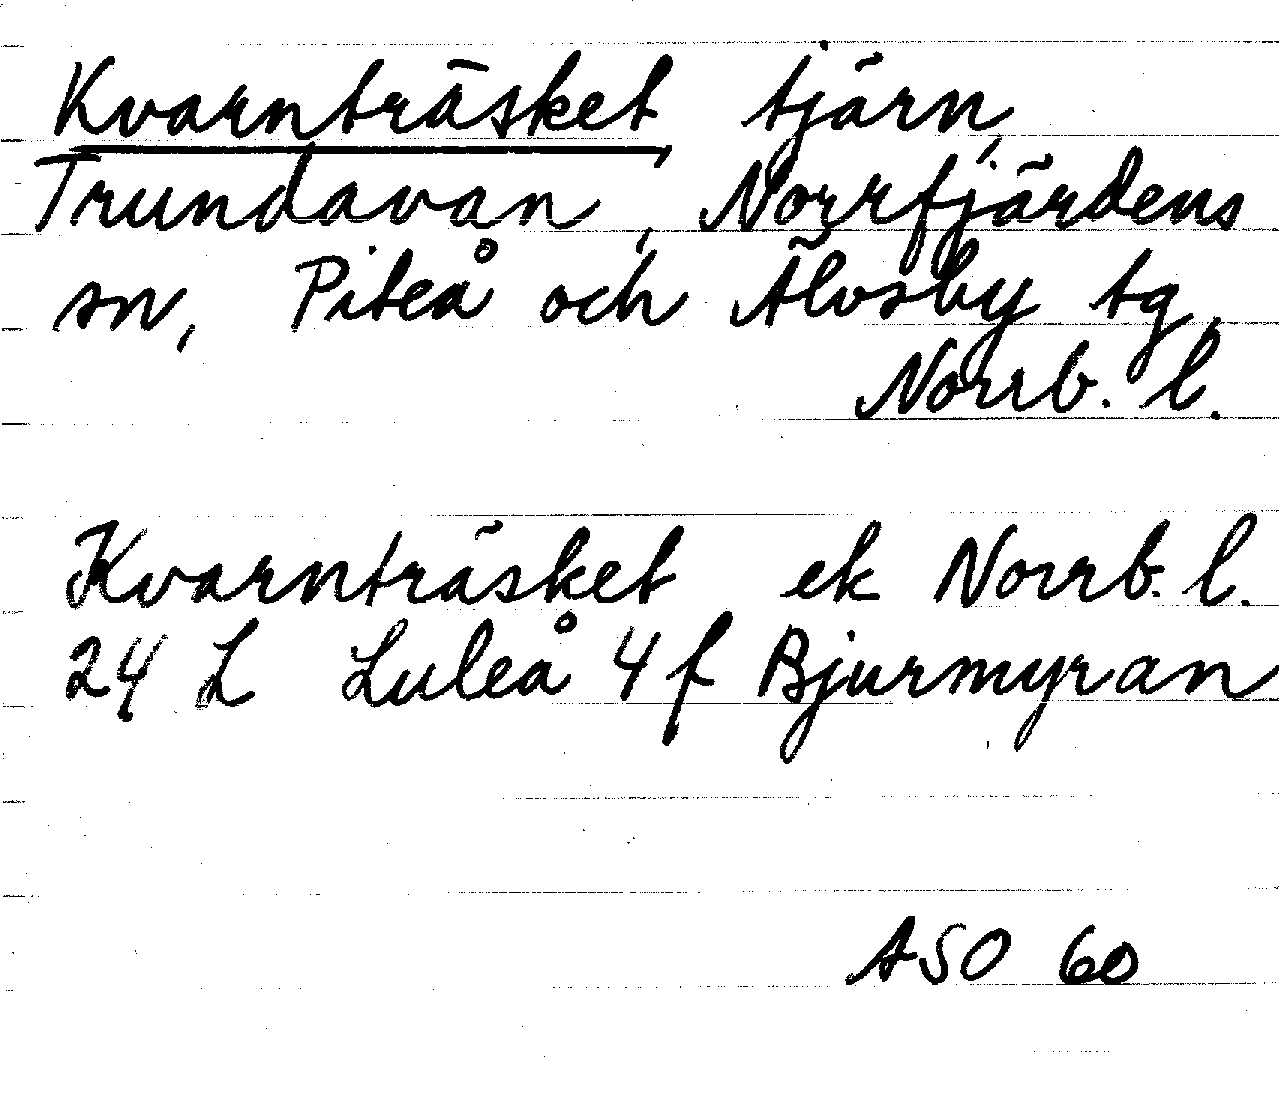 Kvarnträsket, tjärn,
Trundavan, Norrfjärdens
sn, Piteå och Älvsby tg,
Norrb. l.
Kvarnträsket ek Norrb. l.
24 L Luleå 4 f Bjurmyran
ASO 60